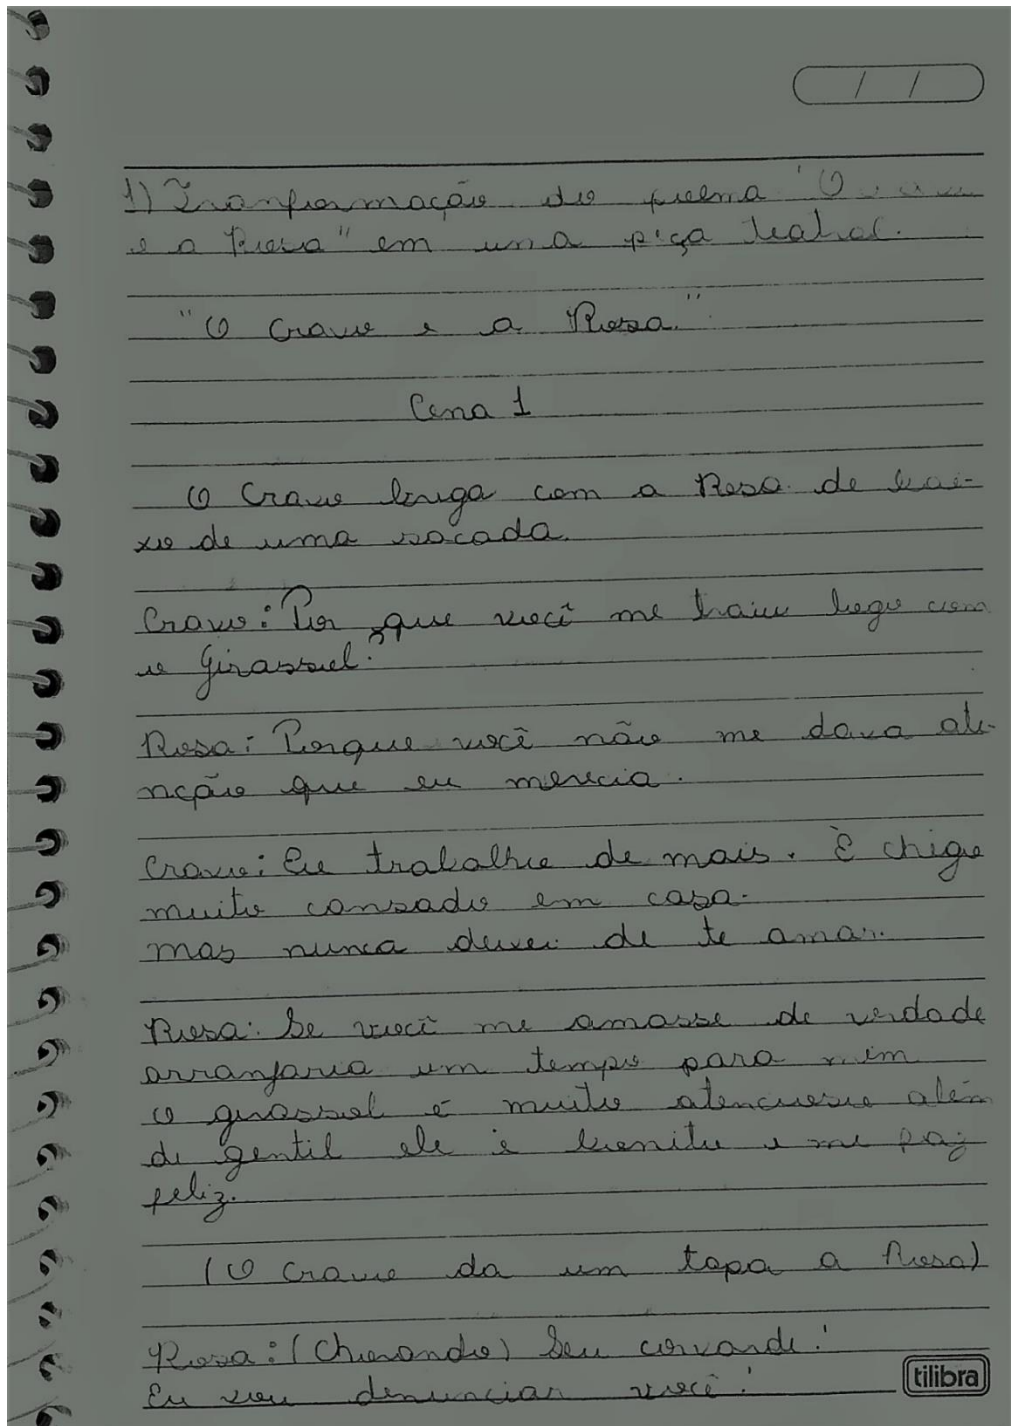 / /
1) Tranformação do poema "O
e a Rosa" em uma peça teatral.
"O Cravo e a Rosa."
Cena 1
O Cravo briga com a Rosa de bai-
xo de uma sacada.
Cravo: Por que você me traiu logo com
o Girassol?
Rosa: Porque você não me dava ate-
nção que eu merecia.
Cravo: Eu trabalho de mais. E chego
muito cansado em casa.
mas nunca deixei de te amar.
Rosa: Se você me amasse de verdade
arranjaria um tempo para mim
O girassol é muito atencioso além
de gentil ele é bonito e me faz
feliz.
(O Cravo da um tapa a Rosa)
Rosa: (Chorando) Seu covarde!
Eu vou denunciar você!
tilibra